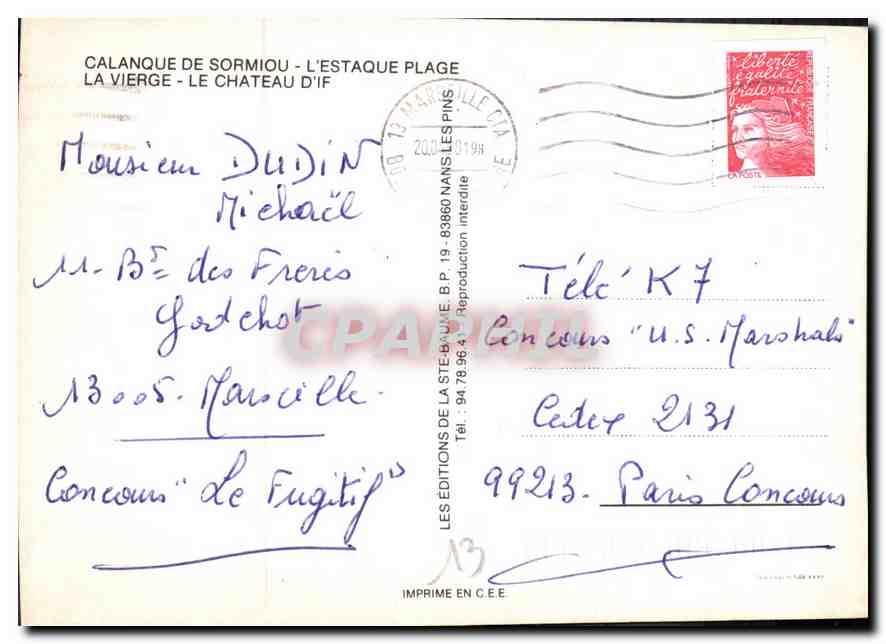 CALANQUE DE SORMIOU - L'ESTAQUE PLAGE
LA VIERGE - LE CHATEAU D'IF
Monsieur DUDIN
Michaël
11 - Bd des Freres
Godchot
13005. Marseille.
Concours "Le Fugitif"
LES EDITIONS DE LA STE-BAUME. B.P. 19 - 83860 NANS LES PINS
Tél. : 94.78.96.4 Reproduction interdite
13 MARSEILLE CTA
liberté
égalité
fraternité
REPUBLIQUE FRANÇAISE
LA POSTE
Télé K7
Concours "U.S. Marshals"
Cedex 2131
99213. Paris Concours
13
IMPRIME EN C.E.E.
CPAPHIL